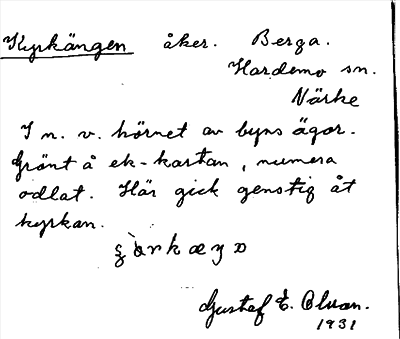 Kyrkängen åker. Berga.
Hardemo sn.
Närke
I n. v. hörnet av byns ägor.
Grönt å ek-kartan, numera
odlat. Här gick genstig åt
kyrkan.
Gustaf E. Olsson.
1931